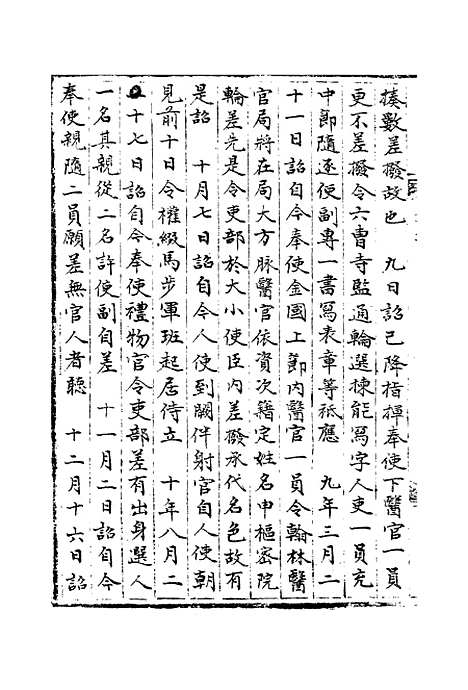 揍數差撥故也　九日詔已降指揮奉使下醫官一員
更不差撥令六曹寺監通輪選揀能寫字人吏一員充
中節隨逐使副專一書寫表章等祗應　九年三月二
十一日詔自今奉使金國上節內醫官一員令翰林醫
官局將在局大方脉醫官依資次籍定姓名申樞密院
輪差先是令吏部於大小使臣內差撥承代名色故有
是詔　十月七日詔自今人使到闕伴射官自人使朝
見前十日令權綴馬步軍班起居侍立　十年八月二
十七日詔自今奉使禮物官令吏部差有出身選人
一名其親從二名許使副自差　十一月二日詔自今
奉使親隨二員願差無官人者聽　十二月十六日詔